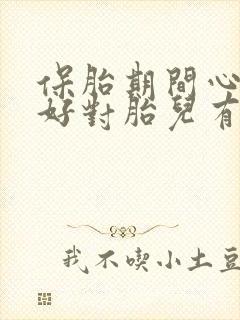 保胎期間心
好對胎兒有
我不喫小土豆